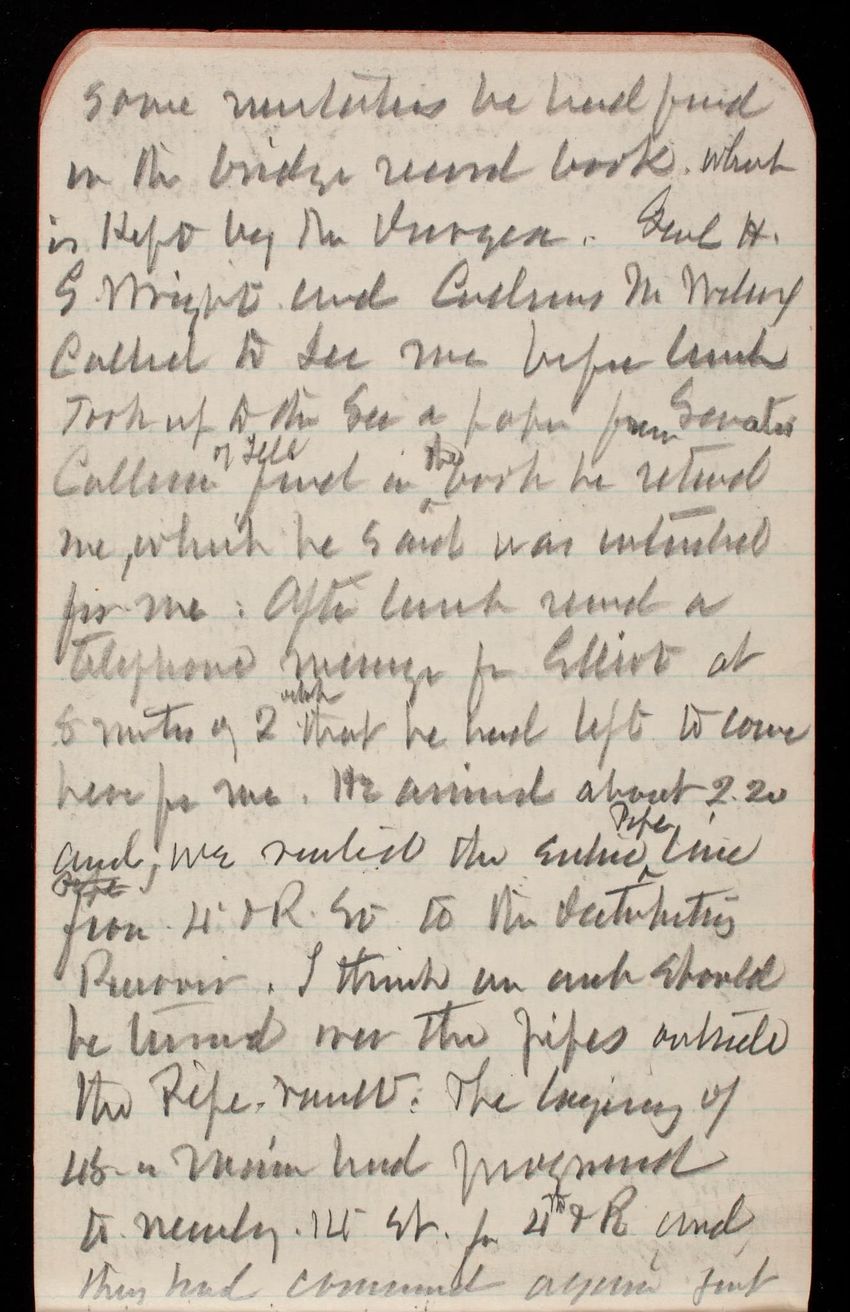 Some mistakes he had found
in the bridge record book. which
is Kept by the Surgeon. Genl H.
G Wright and Cadmus M Wilcox
Called to see me before lunch
Took up to the Sec a paper from Senator
Cullom of Ills found in the book he returned
me, which he said was intended
for me. After lunch recvd a
telephone message fr Elliot at
5 mintes of 2 oclock that he had left to come
here for me. He arrived about 2.20
and, we visited the entire Pipe line
from 4 & R. St to the distributing
Reservoir. I think an arch should
be turned over the pipes outside
the Pipe. Vault. The laying of
48 in Main had progressed
to nearly 14 St. fr 4th & R and
they had commend again just